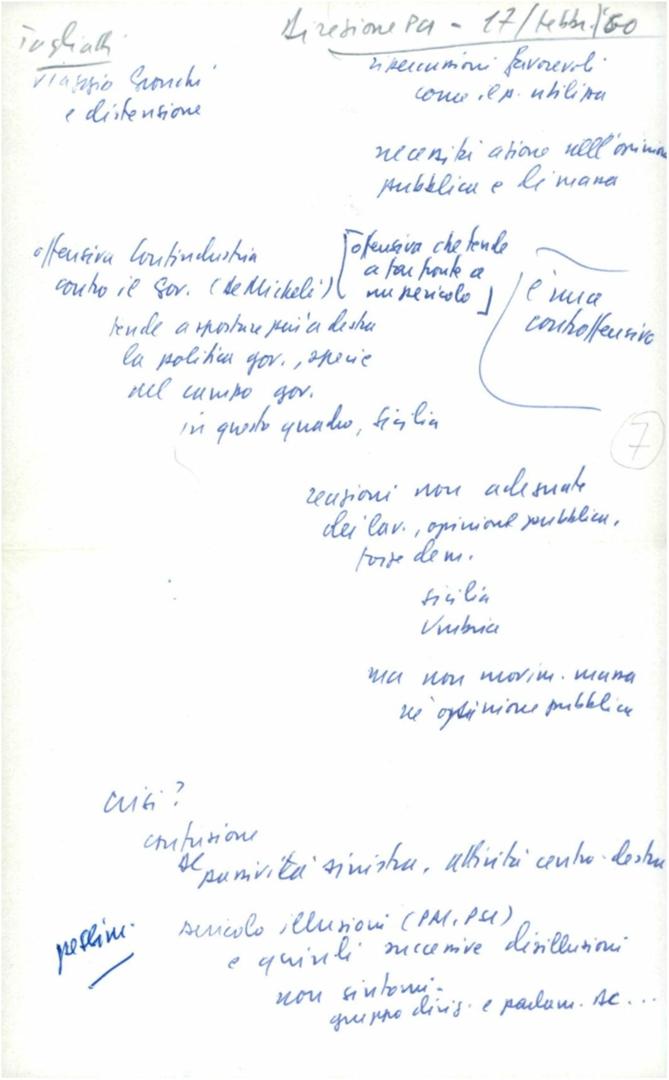 Direzione PCI - 17/febbr/60
Togliatti
viaggio Gronchi
e distensione
ripercussioni favorevoli
come il p. utilizza
necessità azione nell'opinione
pubblica e di massa
offensiva Confindustria
contro il Gov. (De Micheli)
[offensiva che tende
a far fronte a
un pericolo]
è una
controffensiva
tende a spostare più a destra
la politica gov., specie
nel campo gov.
in questo quadro, Sicilia
7
reazioni non adeguate
dei lav., opinione pubblica,
forze dem.
Sicilia
Umbria
ma non movim. massa
né opinione pubblica
crisi?
confusione
DC
passività sinistra, attività centro-destra
pessim.
pericolo illusioni (PSI)
e quindi successive disillusioni
non sintomi
gruppo dirig. e parlam. DC...